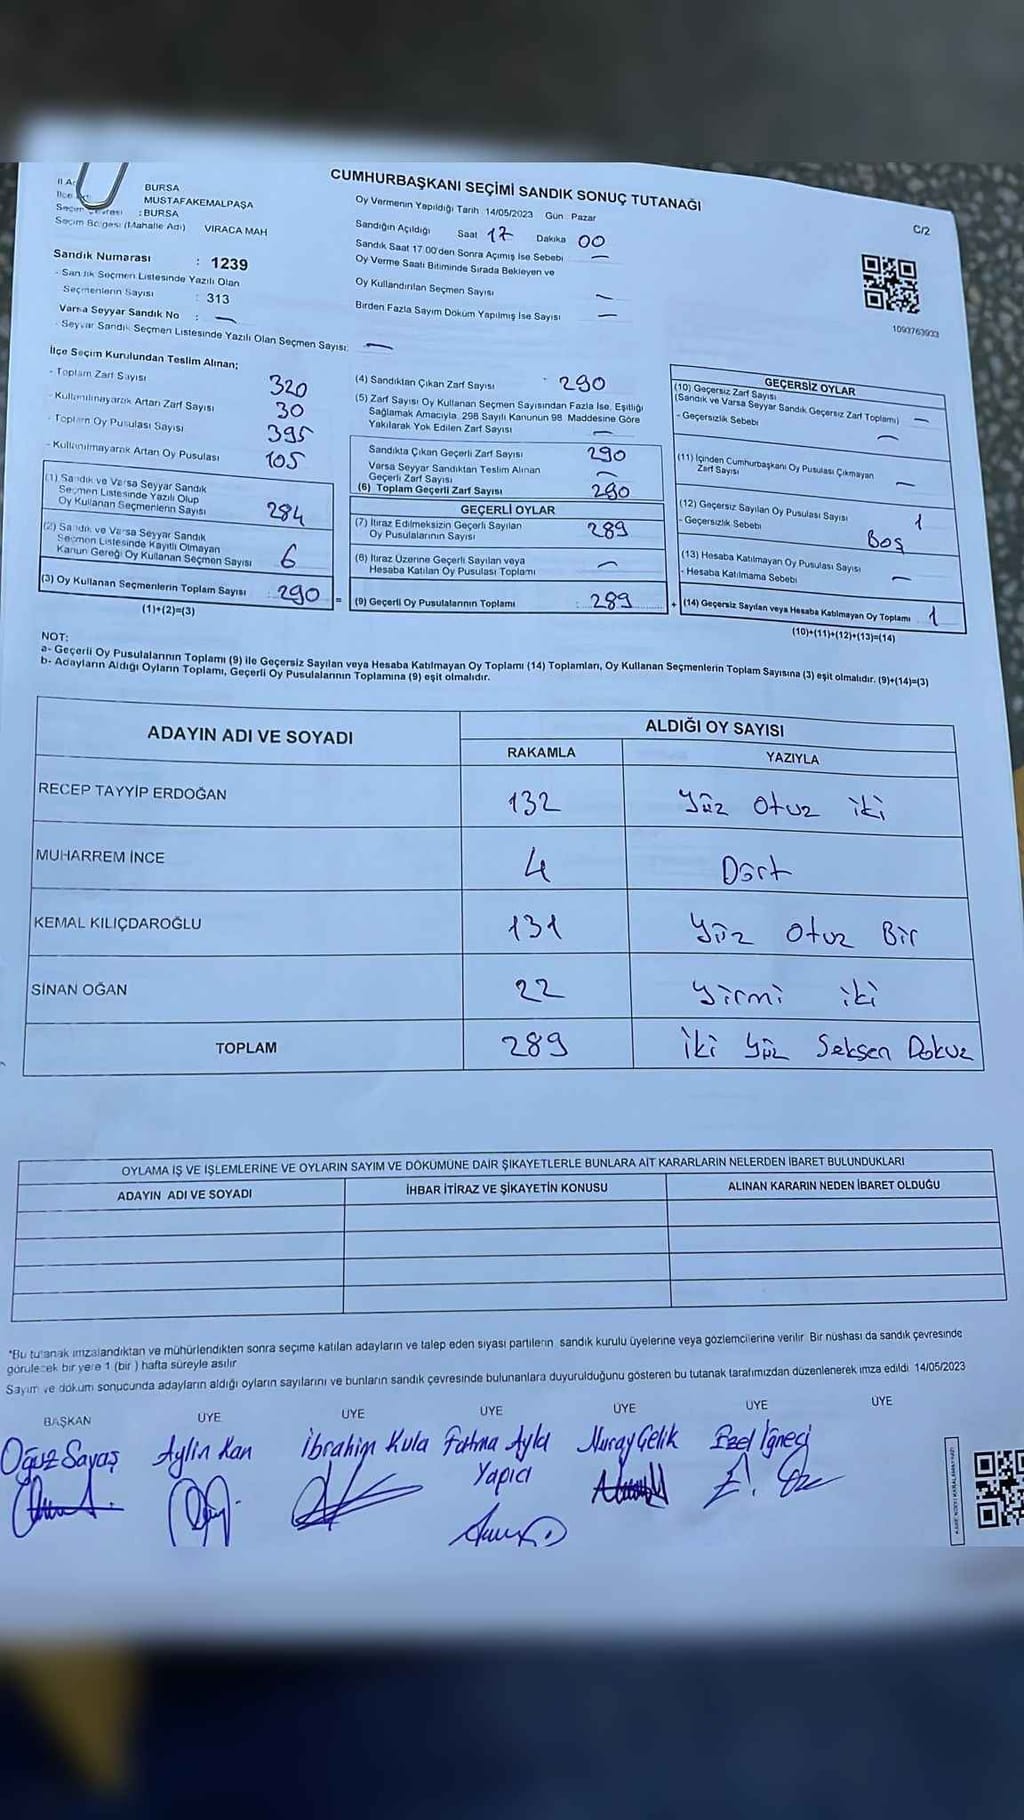 CUMHURBAŞKANI SEÇİMİ SANDIK SONUÇ TUTANAĞI
C/2
BURSA
MUSTAFAKEMALPAŞA
: BURSA
Seçim Bölgesi (Mahalle Adı) VIRACA MAH
Oy Vermenin Yapıldığı Tarih 14/05/2023 Gün Pazar
Sandığın Açıldığı Saat 17 Dakika 00
Sandık Saat 17 00'den Sonra Açımış İse Sebebi —
Oy Verme Saati Bitiminde Sırada Bekleyen ve
Oy Kullandırılan Seçmen Sayısı —
Birden Fazla Sayım Döküm Yapılmış İse Sayısı —
1093763933
Sandık Numarası : 1239
- Sandık Seçmen Listesinde Yazılı Olan
Seçmenlerin Sayısı : 313
Varsa Seyyar Sandık No : —
- Seyyar Sandık Seçmen Listesinde Yazılı Olan Seçmen Sayısı: —
İlçe Seçim Kurulundan Teslim Alınan;
- Toplam Zarf Sayısı 320
- Kullanılmayarak Artan Zarf Sayısı 30
- Toplam Oy Pusulası Sayısı 395
- Kullanılmayarak Artan Oy Pusulası 105
(1) Sandık ve Varsa Seyyar Sandık
Seçmen Listesinde Yazılı Olup
Oy Kullanan Seçmenlerin Sayısı 284
(2) Sandık ve Varsa Seyyar Sandık
Seçmen Listesinde Kayıtlı Olmayan
Kanun Gereği Oy Kullanan Seçmen Sayısı 6
(3) Oy Kullanan Seçmenlerin Toplam Sayısı : 290
(1)+(2)=(3)
(4) Sandıktan Çıkan Zarf Sayısı 290
(5) Zarf Sayısı Oy Kullanan Seçmen Sayısından Fazla İse, Eşitliği
Sağlamak Amacıyla, 298 Sayılı Kanunun 98 Maddesine Göre
Yakılarak Yok Edilen Zarf Sayısı —
Sandıkta Çıkan Geçerli Zarf Sayısı 290
Varsa Seyyar Sandıktan Teslim Alınan
Geçerli Zarf Sayısı —
(6) Toplam Geçerli Zarf Sayısı 290
GEÇERLİ OYLAR
(7) İtiraz Edilmeksizin Geçerli Sayılan
Oy Pusulalarının Sayısı 289
(8) İtiraz Üzerine Geçerli Sayılan veya
Hesaba Katılan Oy Pusulası Toplamı —
= (9) Geçerli Oy Pusulalarının Toplamı : 289
GEÇERSİZ OYLAR
(10) Geçersiz Zarf Sayısı
(Sandık ve Varsa Seyyar Sandık Geçersiz Zarf Toplamı) —
- Geçersizlik Sebebi —
(11) İçinden Cumhurbaşkanı Oy Pusulası Çıkmayan
Zarf Sayısı —
(12) Geçersiz Sayılan Oy Pusulası Sayısı 1
- Geçersizlik Sebebi Boş
(13) Hesaba Katılmayan Oy Pusulası Sayısı
- Hesaba Katılmama Sebebi —
+ (14) Geçersiz Sayılan veya Hesaba Katılmayan Oy Toplamı 1
(10)+(11)+(12)+(13)=(14)
NOT:
a- Geçerli Oy Pusulalarının Toplamı (9) ile Geçersiz Sayılan veya Hesaba Katılmayan Oy Toplamı (14) Toplamları, Oy Kullanan Seçmenlerin Toplam Sayısına (3) eşit olmalıdır. (9)+(14)=(3)
b- Adayların Aldığı Oyların Toplamı, Geçerli Oy Pusulalarının Toplamına (9) eşit olmalıdır.
ADAYIN ADI VE SOYADI ALDIĞI OY SAYISI
RAKAMLA YAZIYLA
RECEP TAYYİP ERDOĞAN 132 Yüz Otuz iki
MUHARREM İNCE 4 Dört
KEMAL KILIÇDAROĞLU 131 Yüz Otuz Bir
SİNAN OĞAN 22 Yirmi iki
TOPLAM 289 İki Yüz Seksen Dokuz
OYLAMA İŞ VE İŞLEMLERİNE VE OYLARIN SAYIM VE DÖKÜMÜNE DAİR ŞİKAYETLERLE BUNLARA AİT KARARLARIN NELERDEN İBARET BULUNDUKLARI
ADAYIN ADI VE SOYADI İHBAR İTİRAZ VE ŞİKAYETİN KONUSU ALINAN KARARIN NEDEN İBARET OLDUĞU
*Bu tutanak imzalandıktan ve mühürlendikten sonra seçime katılan adayların ve talep eden siyasi partilerin sandık kurulu üyelerine veya gözlemcilerine verilir Bir nüshası da sandık çevresinde
görülecek bir yere 1 (bir ) hafta süreyle asılır
Sayım ve döküm sonucunda adayların aldığı oyların sayılarını ve bunların sandık çevresinde bulunanlara duyurulduğunu gösteren bu tutanak tarafımızdan düzenlenerek imza edildi 14/05/2023
BAŞKAN ÜYE ÜYE ÜYE ÜYE ÜYE ÜYE
Oğuz Savaş Aylin Kan İbrahim Kula Fatma Ayla Nuray Çelik Ezel İğneci
Yapıcı